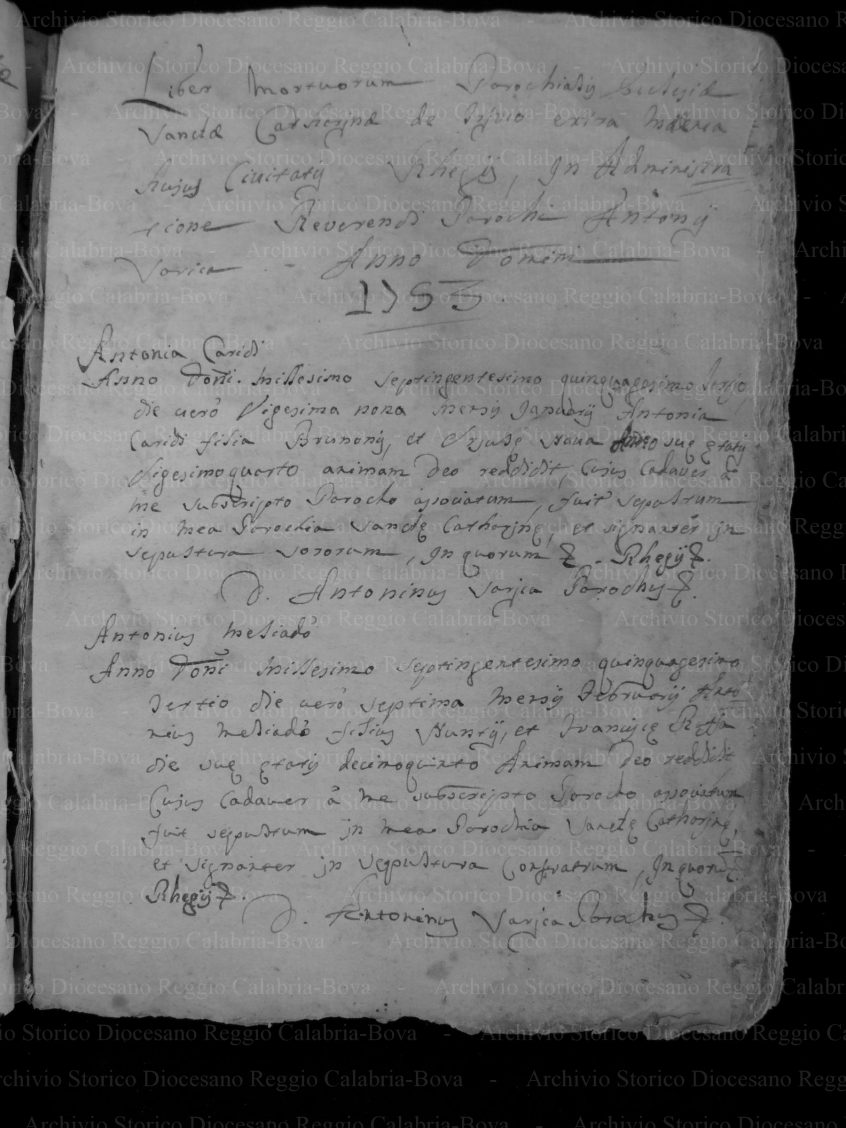 Liber Mortuorum Parochialis Ecclesiæ
Sanctæ Catharinæ de extra Mænia
hujus Civitatis Rhegij, In Administra
tione Reverendi Parochi Antonij
Sarica - Anno Domini
1753
Antonia Caridi
Anno Dom̃i. Millesimo septingentesimo quinquagesimo tertio
die uerò Vigesima nona mensis Januarij Antonia
Caridi filia Brunonis, et suę ętatis
Vigesimoquarto animam Deo reddidit, Cujus Cadaver à
me subscripto Parocho associatum, fuit sepultum
in mea Parochia Sanctę Catharinę, et signanter in
sepultura sororum, In quorum &. Rhegij &.
D. Antoninus Sarica Parochus &.
Antonius Meliadò
Anno Dom̃i Millesimo septingentesimo quinquagesimo
tertio die uerò septima mensis Februarij Anto
nius Meliadò filius Nuntij, et
die suę ętatis decimoquinto Animam Deo reddidit
Cujus Cadaver à me subscripto Parocho associatum
fuit sepultum in mea Parochia Sanctę Catharinę,
et signanter in sepultura Confratrum, In quorũ
Rhegij &.
D. Antoninus Sarica Parochus &.
Archivio Storico Diocesano Reggio Calabria-Bova